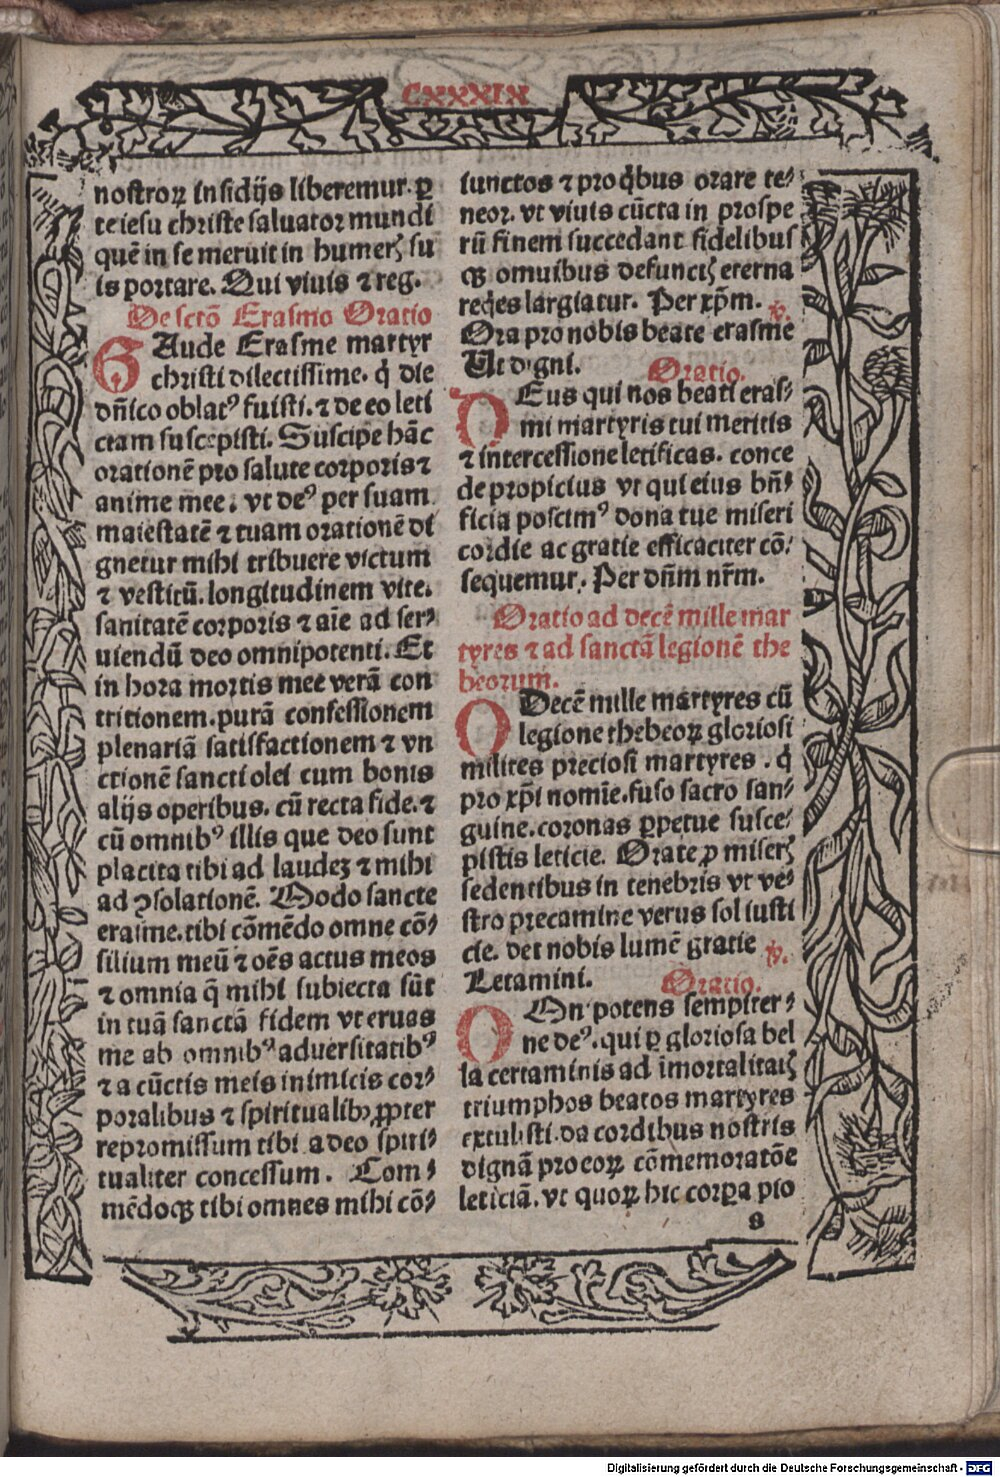 CXXXIX
nostroꝝ insidijs liberemur. ꝑ
te iesu christe saluator mundi
quē in se meruit in humerꝭ su
is portare. Qui viuis ⁊ reg.
De sctō Erasmo Oratio
GAude Erasme martyr
christi dilectissime. q̇ die
dñico oblatꝰ fuisti. ⁊ de eo leti
ciam suscepisti. Suscipe hāc
orationē pro salute corporis ⁊
anime mee. vt deꝰ per suam
maiestatē ⁊ tuam orationē di
gnetur mihi tribuere victum
⁊ vestitū. longitudinem vite.
sanitatē corporis ⁊ aīe ad ser⸗
uiendū deo omnipotenti. Et
in hora mortis mee verā con
tritionem. purā confessionem
plenariā satisfactionem ⁊ vn
ctionē sancti olei cum bonis
alijs operibus. cū recta fide. ⁊
cū omnibꝰ illis que deo sunt
placita tibi ad laudeꝫ ⁊ mihi
ad ꝯsolationē. Modo sancte
erasme. tibi cōmēdo omne cō⸗
silium meū ⁊ oēs actus meos
⁊ omnia q̄ mihi subiecta sūt
in tuā sanctā fidem vt eruas
me ab omnibꝰ aduersitatibꝰ
⁊ a cūctis meis inimicis cor⸗
poralibus ⁊ spiritualibꝫ ꝓpter
repromissum tibi a deo spiri⸗
tualiter concessum. Com⸗
mēdoqꝫ tibi omnes mihi cō⸗
iunctos ⁊ pro q̇bus orare te⸗
neor. vt viuis cūcta in prospe
rū finem succedant fidelibus
qꝫ omuibus defunctꝭ eterna
reqes largiatur. Per xp̄m. ℣.
Ora pro nobis beate erasme
Ut digni. Oratio.
DEus qui nos beati eras⸗
mi martyris tui meritis
⁊ intercessione letificas. conce
de propicius vt qui eius bñ⸗
ficia poscimꝰ dona tue miseri
cordie ac gratie efficaciter cō⸗
sequemur. Per dñm nr̄m.
Oratio ad decē mille mar
tyres ⁊ ad sanctā legionē the
beorum.
ODecē mille martyres cū
legione thebeoꝝ gloriosi
milites preciosi martyres. q̇
pro xp̄i nomīe. fuso sacro san⸗
guine. coronas ꝑpetue susce⸗
pistis leticie. Orate ꝓ miserꝭ
sedentibus in tenebris vt ve⸗
stro precamine verus sol iusti
cie. det nobis lumē gratie ℣.
Letamini. Oratio.
OOmnipotens sempiter⸗
ne deꝰ. qui ꝑ gloriosa bel
la certaminis ad īmortalitatꝭ
triumphos beatos martyres
extulisti. da cordibus nostris
dignā pro eoꝝ cōmemoratōe
leticiā. vt quoꝝ hic corꝑa pio
s
Digitalisierung gefördert durch die Deutsche Forschungsgemeinschaft - DFG